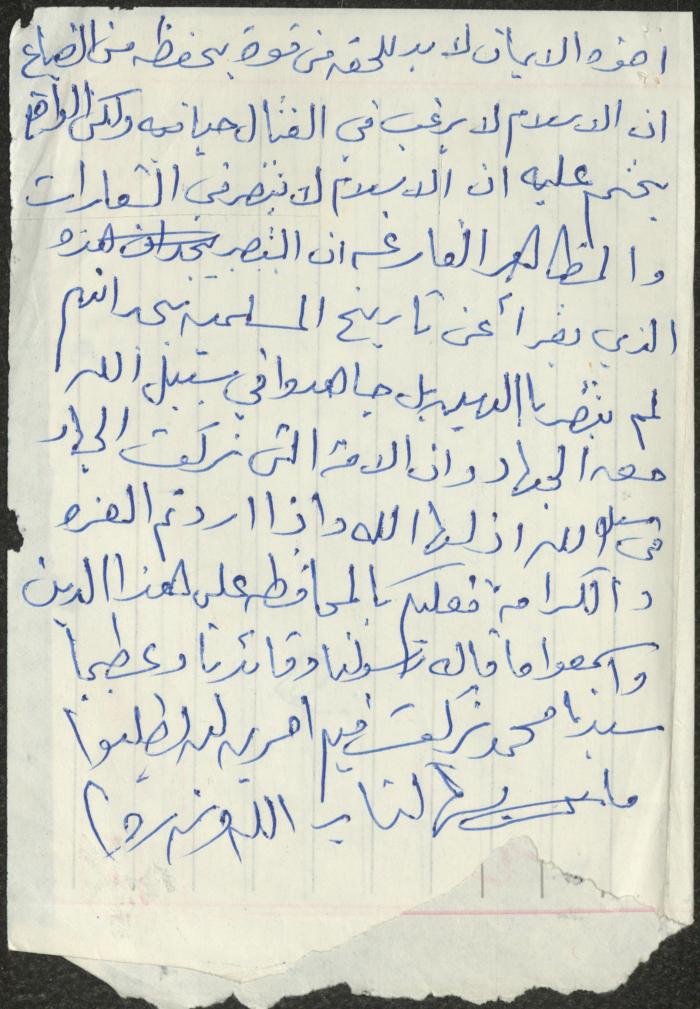 اخوه الايمان لا بد للحق من قوة يحفظه من الضياع
ان الاسلام لا يرغب في القتال حبا فيه ولكن الواقع
يحتم عليه ان الاسلام لا ينتصر في الشعارات
والمظاهر الفارغه ان النصر هذه
الذي يقرأ عن تاريخ المسلمين يجد انهم
لم ينتصروا بل جاهدوا في سبيل الله
حق الجهاد وان الامة التي تركت الجهاد
في سبيل الله اذلها الله واذا اردتم العزه
والكرامة فعليكم بالمحافظه على هذا الدين
واسمعوا ما قال رسولنا وقائدنا وعظيمنا
سيدنا محمد تركت فيكم امرين لن تضلوا
ما كتاب الله